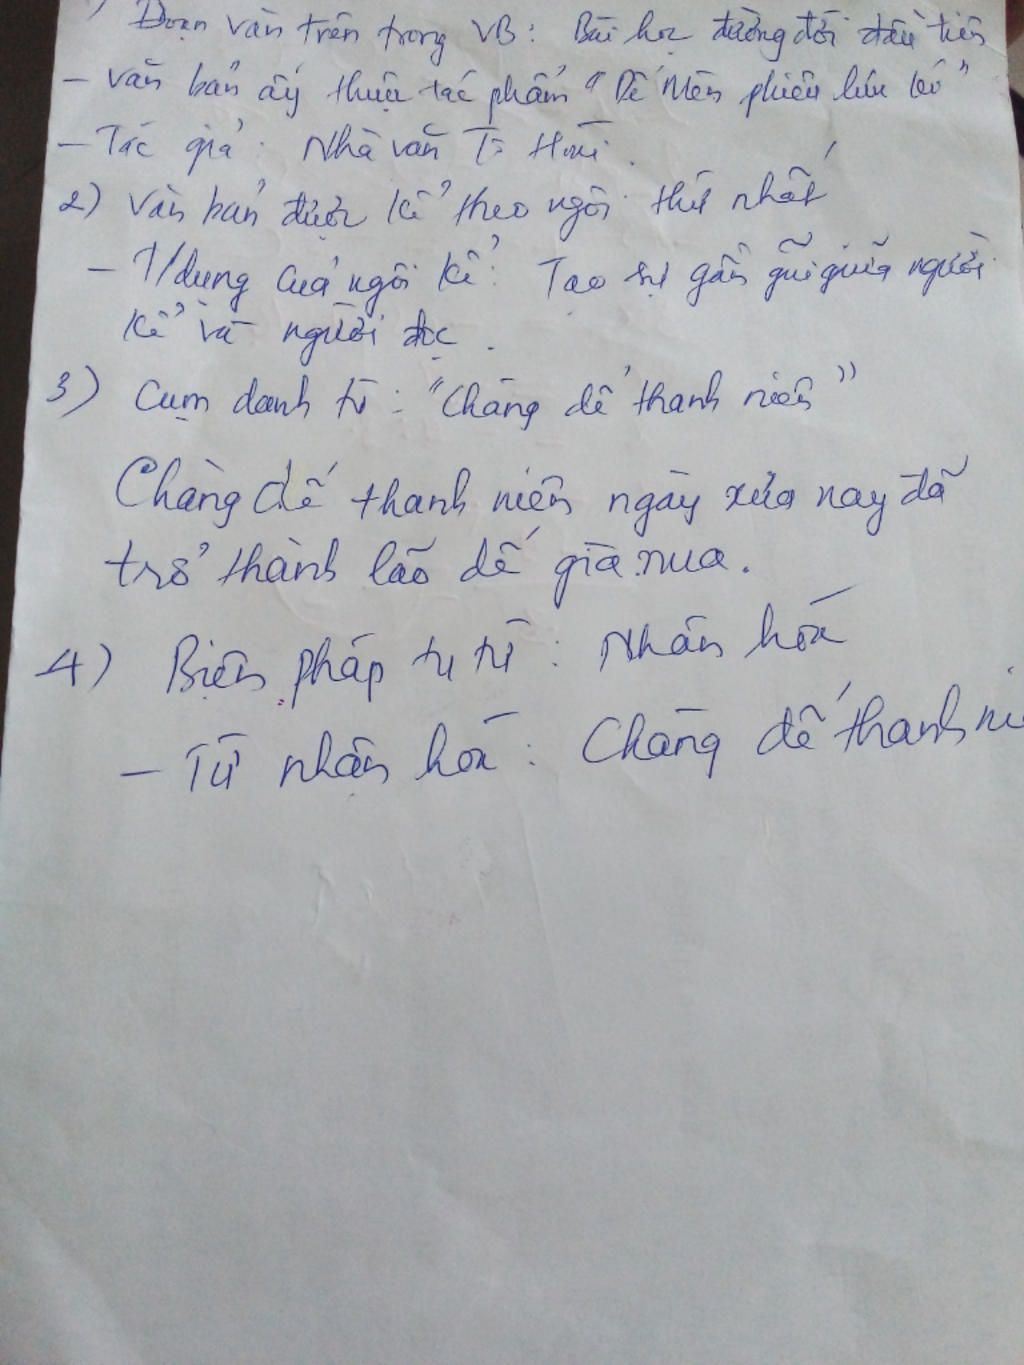 Đoạn văn trên trong VB: Bài học đường đời đầu tiên
- Văn bản ấy thuộc tác phẩm "Dế Mèn phiêu lưu kí"
- Tác giả: Nhà văn Tô Hoài.
2) Văn bản được kể theo ngôi thứ nhất
- T/dụng của ngôi kể: Tạo sự gần gũi giữa người
kể và người đọc.
3) Cụm danh từ: "Chàng dế thanh niên"
Chàng dế thanh niên ngày xưa nay đã
trở thành lão dế già nua.
4) Biện pháp tu từ: Nhân hóa
- Từ nhân hóa: Chàng dế thanh ni